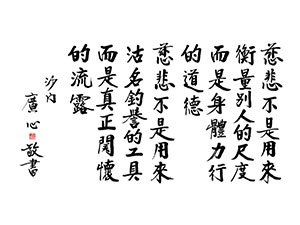 慈悲不是用來
衡量別人的尺度
而是身體力行
的道德
慈悲不是用來
沽名釣譽的工具
而是真正関懷
的流露
沙门
廣心敬書